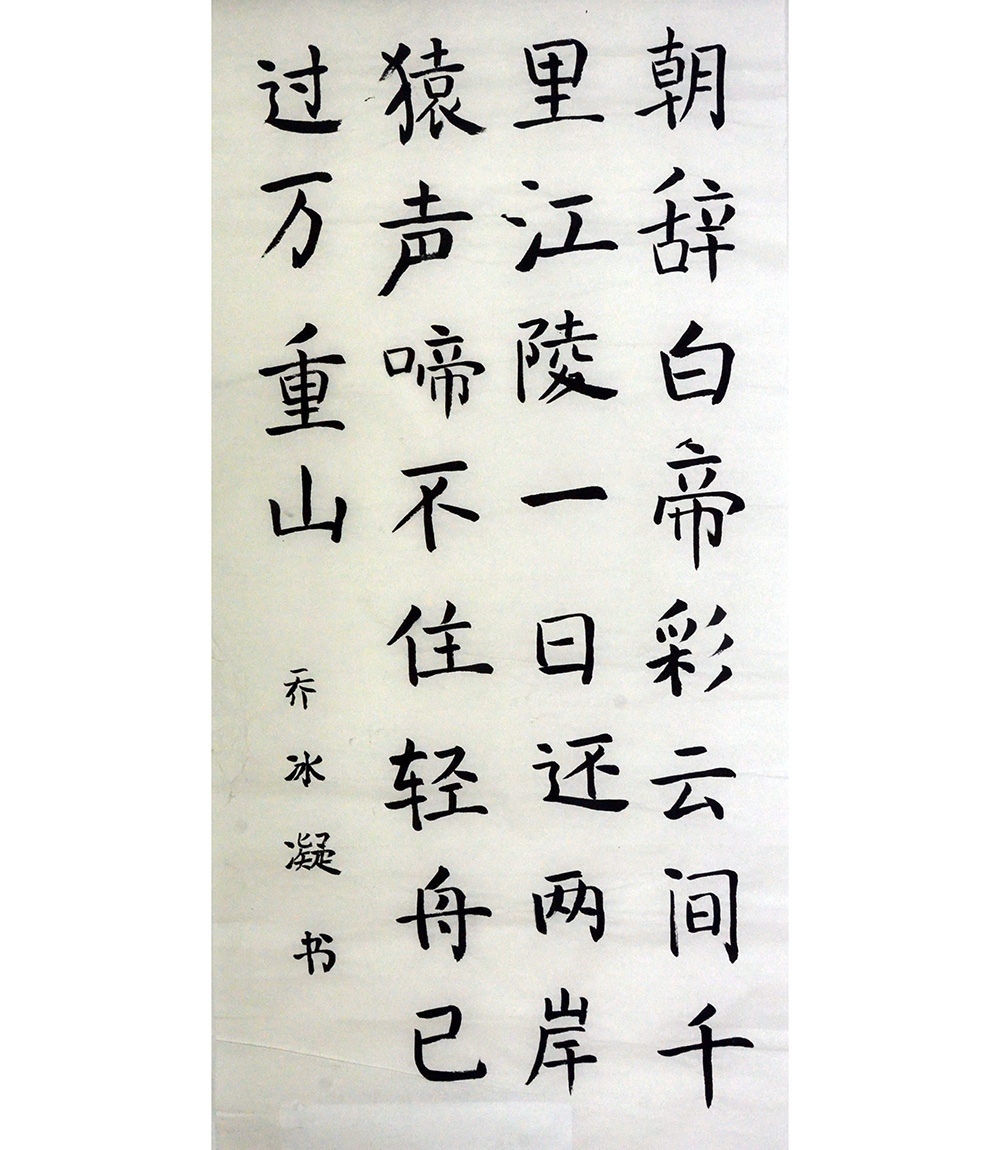 朝辞白帝彩云间千
里江陵一日还两岸
猿声啼不住轻舟已
过万重山
乔冰凝书